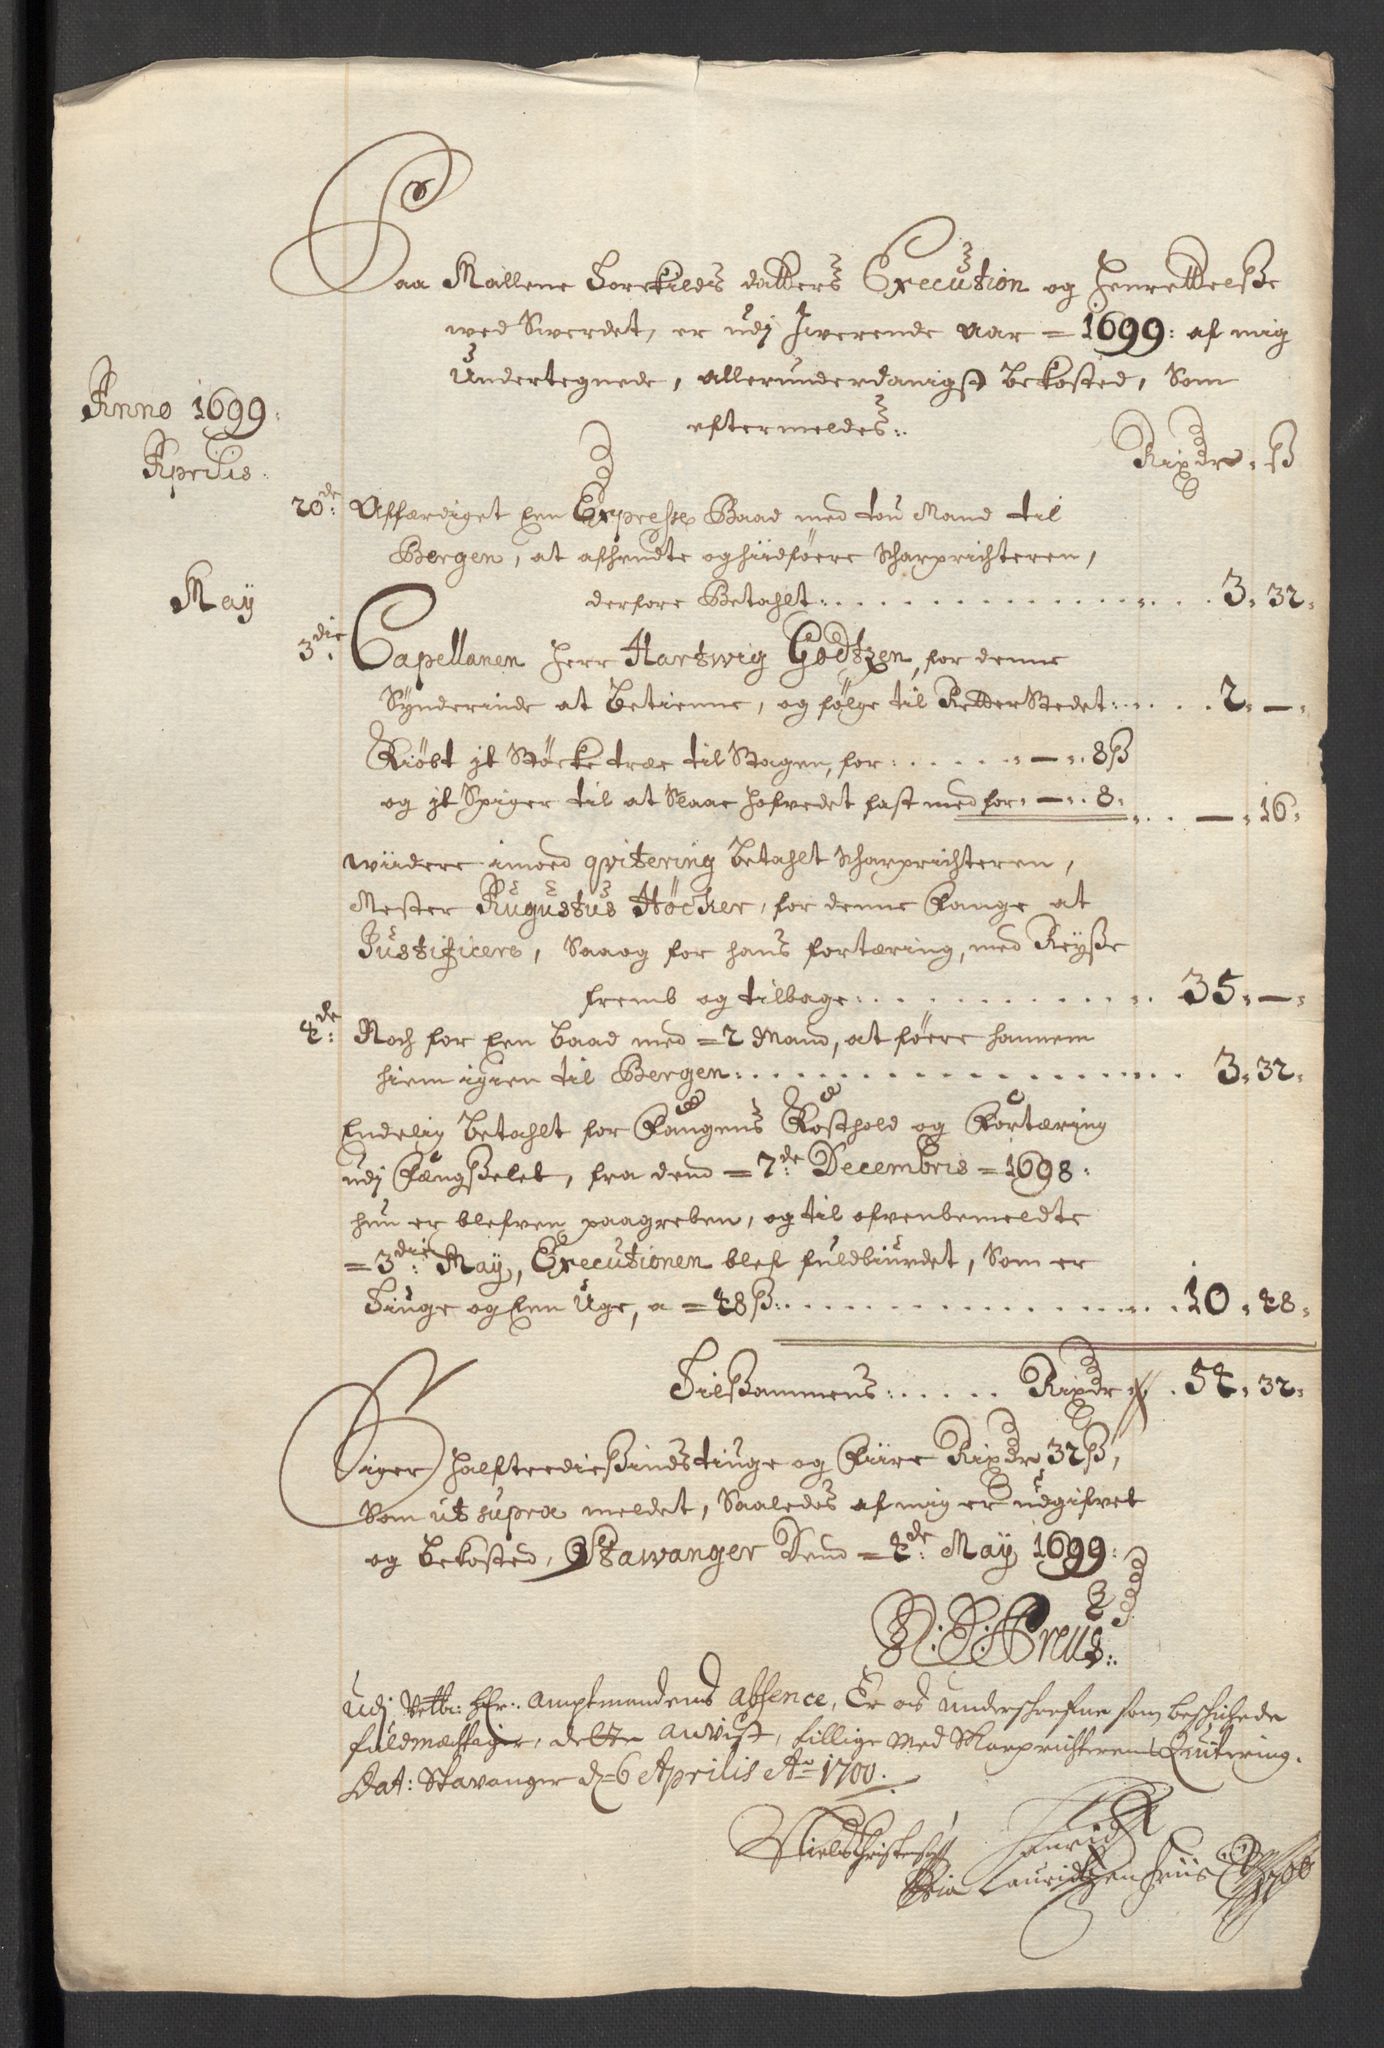 Paa Mallene Torekilds datters Execution og Henrettelße
wed Swerdet, er udj Hwerende aar = 1699: af mig
Undertegnede, allerunderdanigst bekosted, Som
eftermeldes:.
Anno 1699:
Rixdr. ß
Aprilis.
20de: Affærdiget Een Expresse Baad med tou Mand til
Bergen, at afhendte og hiidføere Scharprichteren,
May
derfore Betahlt: 3. 32.
3die. Capellanen Herr Hartwig Godtzen, for denne
Synderinde at betienne, og følge til RetterStedet: 2. —.
Kiøbt jt Støcke træe til Stagen, for: —. 8ß
og jt Spiger til at Slaae hofvedet fast med for. —. 8. — . 16.
widere imoed qvitering betahlt Scharprichteren,
Mester Augustus Höcker, for denne Fange at
Justificere, Saaog for hans fortæring, med Reyße
fremb og tilbage: 35. —.
4de: Noch for Een baad med = 2 Mand, at føere hannem
hiem igien til Bergen: 3. 32.
Endelig betahlt for Fangens Kosthold og Fortæring
udj Fængßelet, fra dend = 7de: Decembris = 1698:
hun er blefven paagreben, og til ofvenbemeldte
= 3die: May, Executionen blef fuldbiurdet, Som er
Tiuge og Een Uge, a = 48ß: 10. 48.
Tilßammens: Rixdr 54. 32.
Siger Halftrediesindstiuge og Fiire Rixdr 32ß,
Som ut supra meldet, Saaledes af mig er udgifvet
og bekosted, Stawanger Dend = 4de: May 1699:
Udj Velb: Hr: Amptmandens absence, Er os underschrefne som beschichede
fuldmechtiger, dette anvist, tillige med Skarprichterens Quitering.
Dat: Stavanger d= 6 Aprilis Ao 1700.
Niels Christensøn
Lauridtzen Friis